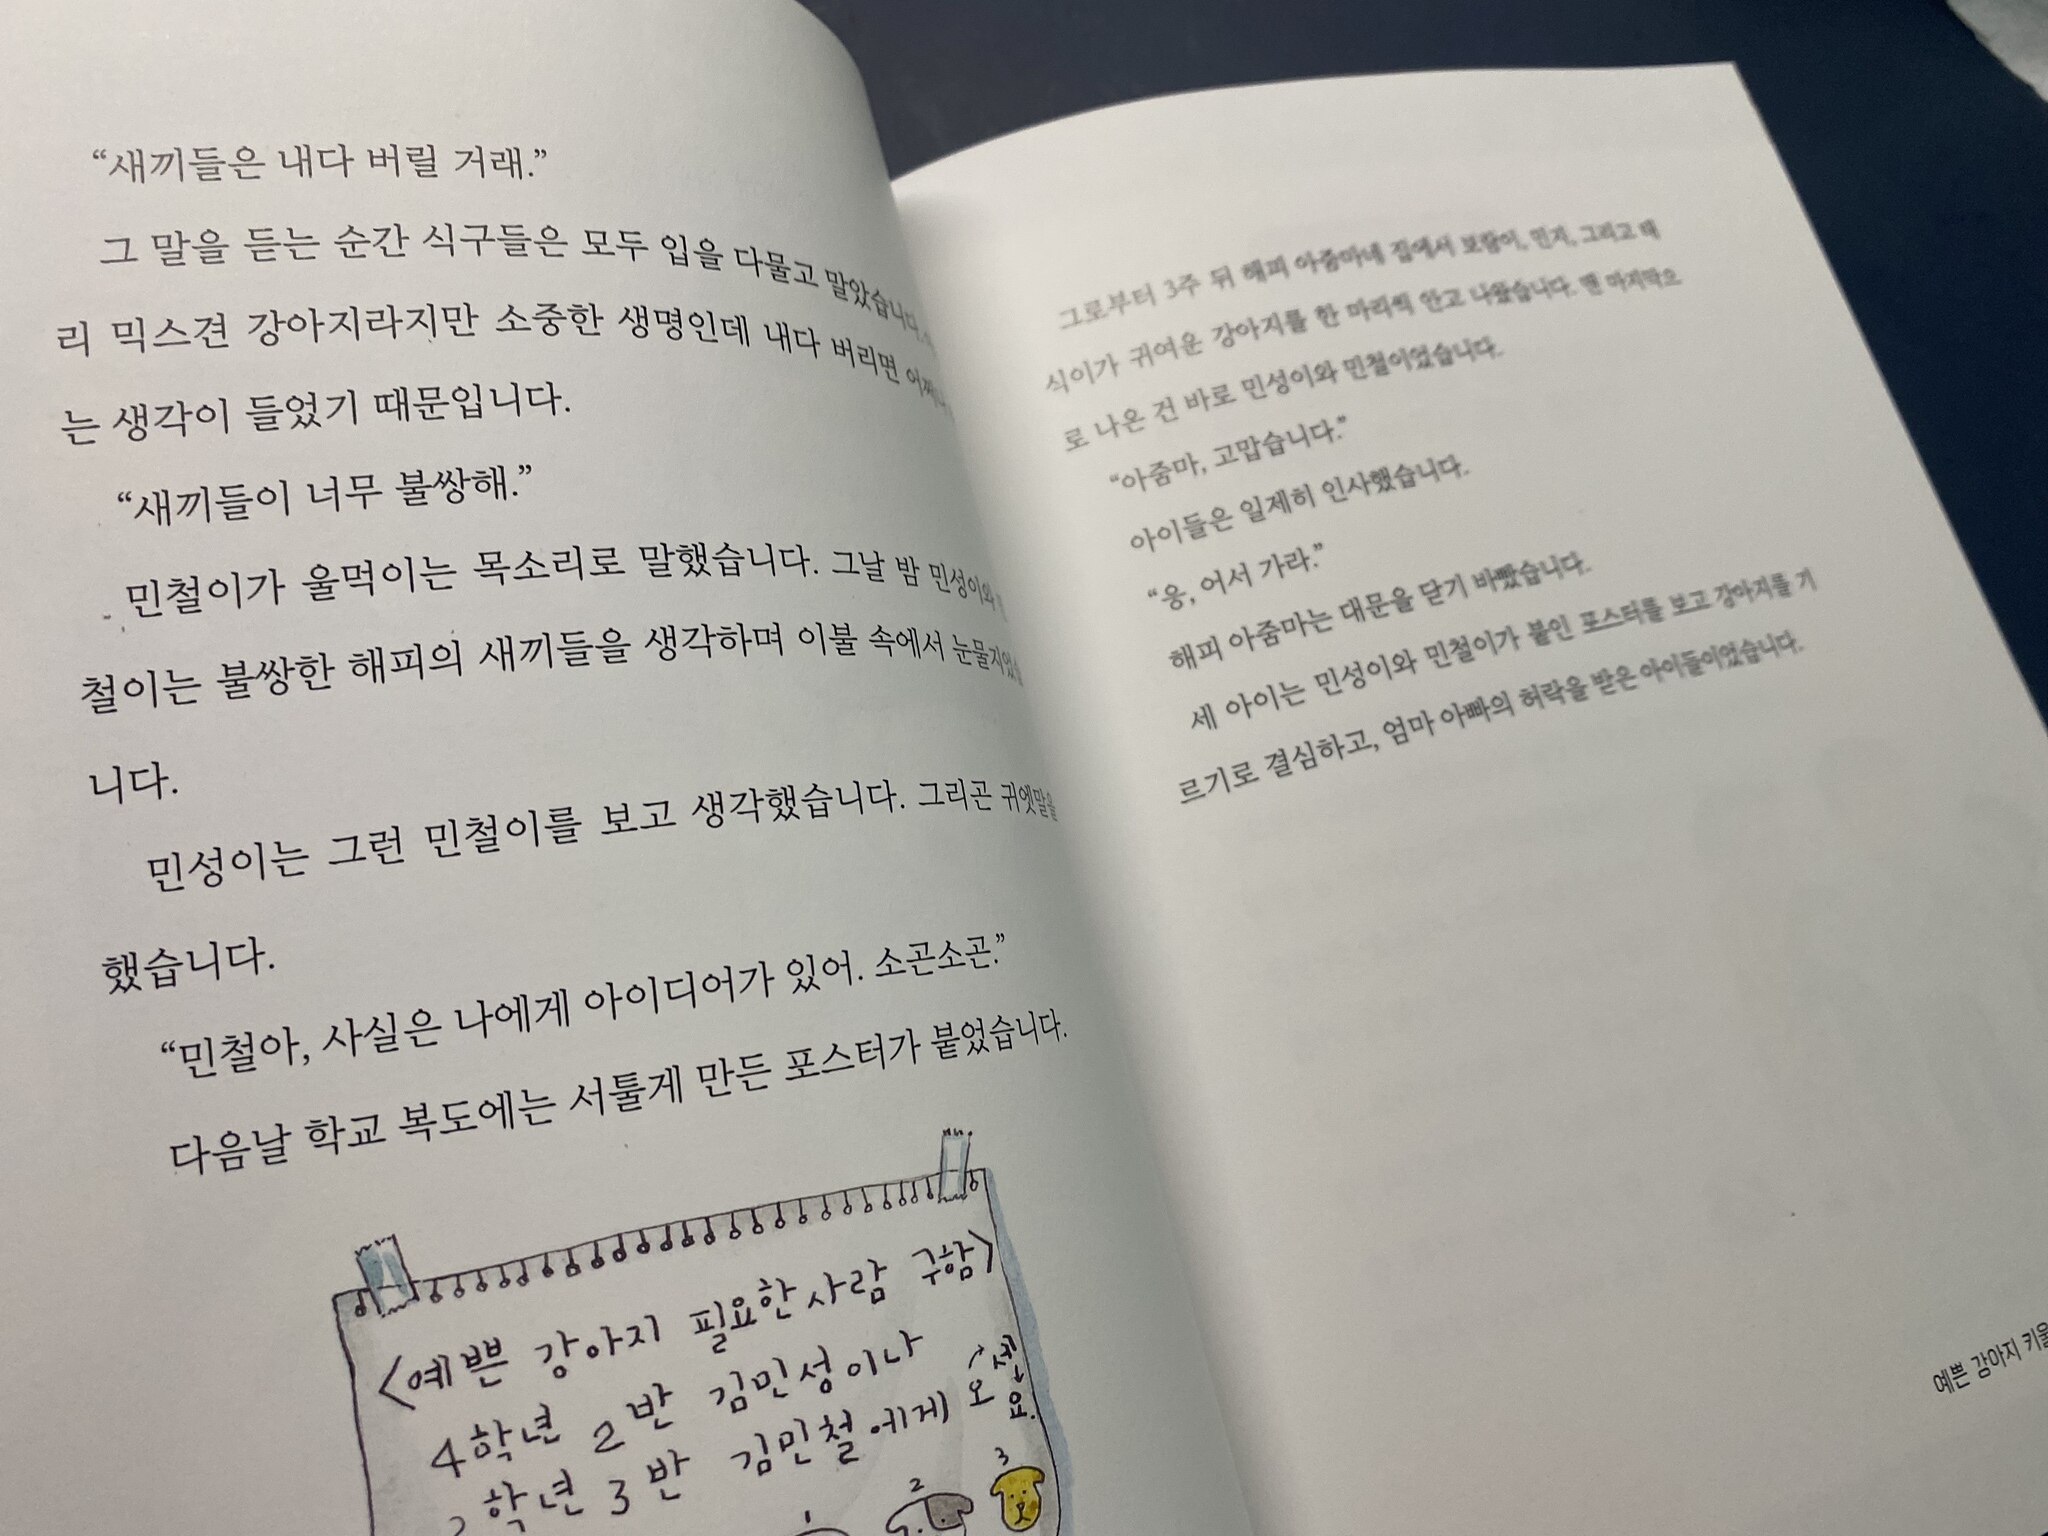 “새끼들은 내다 버릴 거래.”
그 말을 듣는 순간 식구들은 모두 입을 다물고 말았습니다.
리 믹스견 강아지라지만 소중한 생명인데 내다 버리면
는 생각이 들었기 때문입니다.
“새끼들이 너무 불쌍해.”
민철이가 울먹이는 목소리로 말했습니다. 그날 밤 민성이와
철이는 불쌍한 해피의 새끼들을 생각하며 이불 속에서 눈물지었습
니다.
민성이는 그런 민철이를 보고 생각했습니다. 그리곤 귀엣말을
했습니다.
“민철아, 사실은 나에게 아이디어가 있어. 소곤소곤.”
다음날 학교 복도에는 서툴게 만든 포스터가 붙었습니다.
<예쁜 강아지 필요한 사람 구함>
4학년 2반 김민성이나
학년 3반 김민철에게 오세요.
1 2 3
그로부터 3주 뒤 해피 아줌마네 집에서 보람이, 민지, 그리고 태
식이가 귀여운 강아지를 한 마리씩 안고 나왔습니다. 맨 마지막으
로 나온 건 바로 민성이와 민철이었습니다.
“아줌마, 고맙습니다.”
아이들은 일제히 인사했습니다.
“응, 어서 가라.”
해피 아줌마는 대문을 닫기 바빴습니다.
세 아이는 민성이와 민철이가 붙인 포스터를 보고 강아지를 기
르기로 결심하고, 엄마 아빠의 허락을 받은 아이들이었습니다.
예쁜 강아지 키울